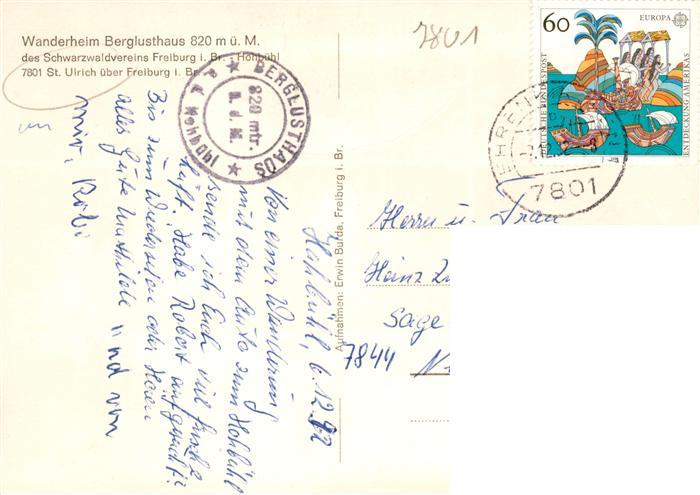 Wanderheim Berglusthaus 820 m ü. M.
des Schwarzwaldvereins Freiburg i. Br. - Hohbühl
7801 St. Ulrich über Freiburg i. Br.
7801
★ BERGLUSTHAUS ★
820 mtr.
ü. d. M.
Hohbühl
60
EUROPA
DEUTSCHE BUNDESPOST
ENTDECKUNG AMERIKAS
EHREN
7801
Hohbühl, 6.12.92
Von einer Wanderung
mit dem Auto zum Hohbühl
sende ich Euch viel frische
Luft. Habe Robert aufgesucht.
Bis zum Wiedersehen oder Hören
alles Gute Mathilde und von
mir, Robi
Aufnahmen: Erwin Burda, Freiburg i. Br.
Herrn u. Frau
Heinz
Säge
7844 N